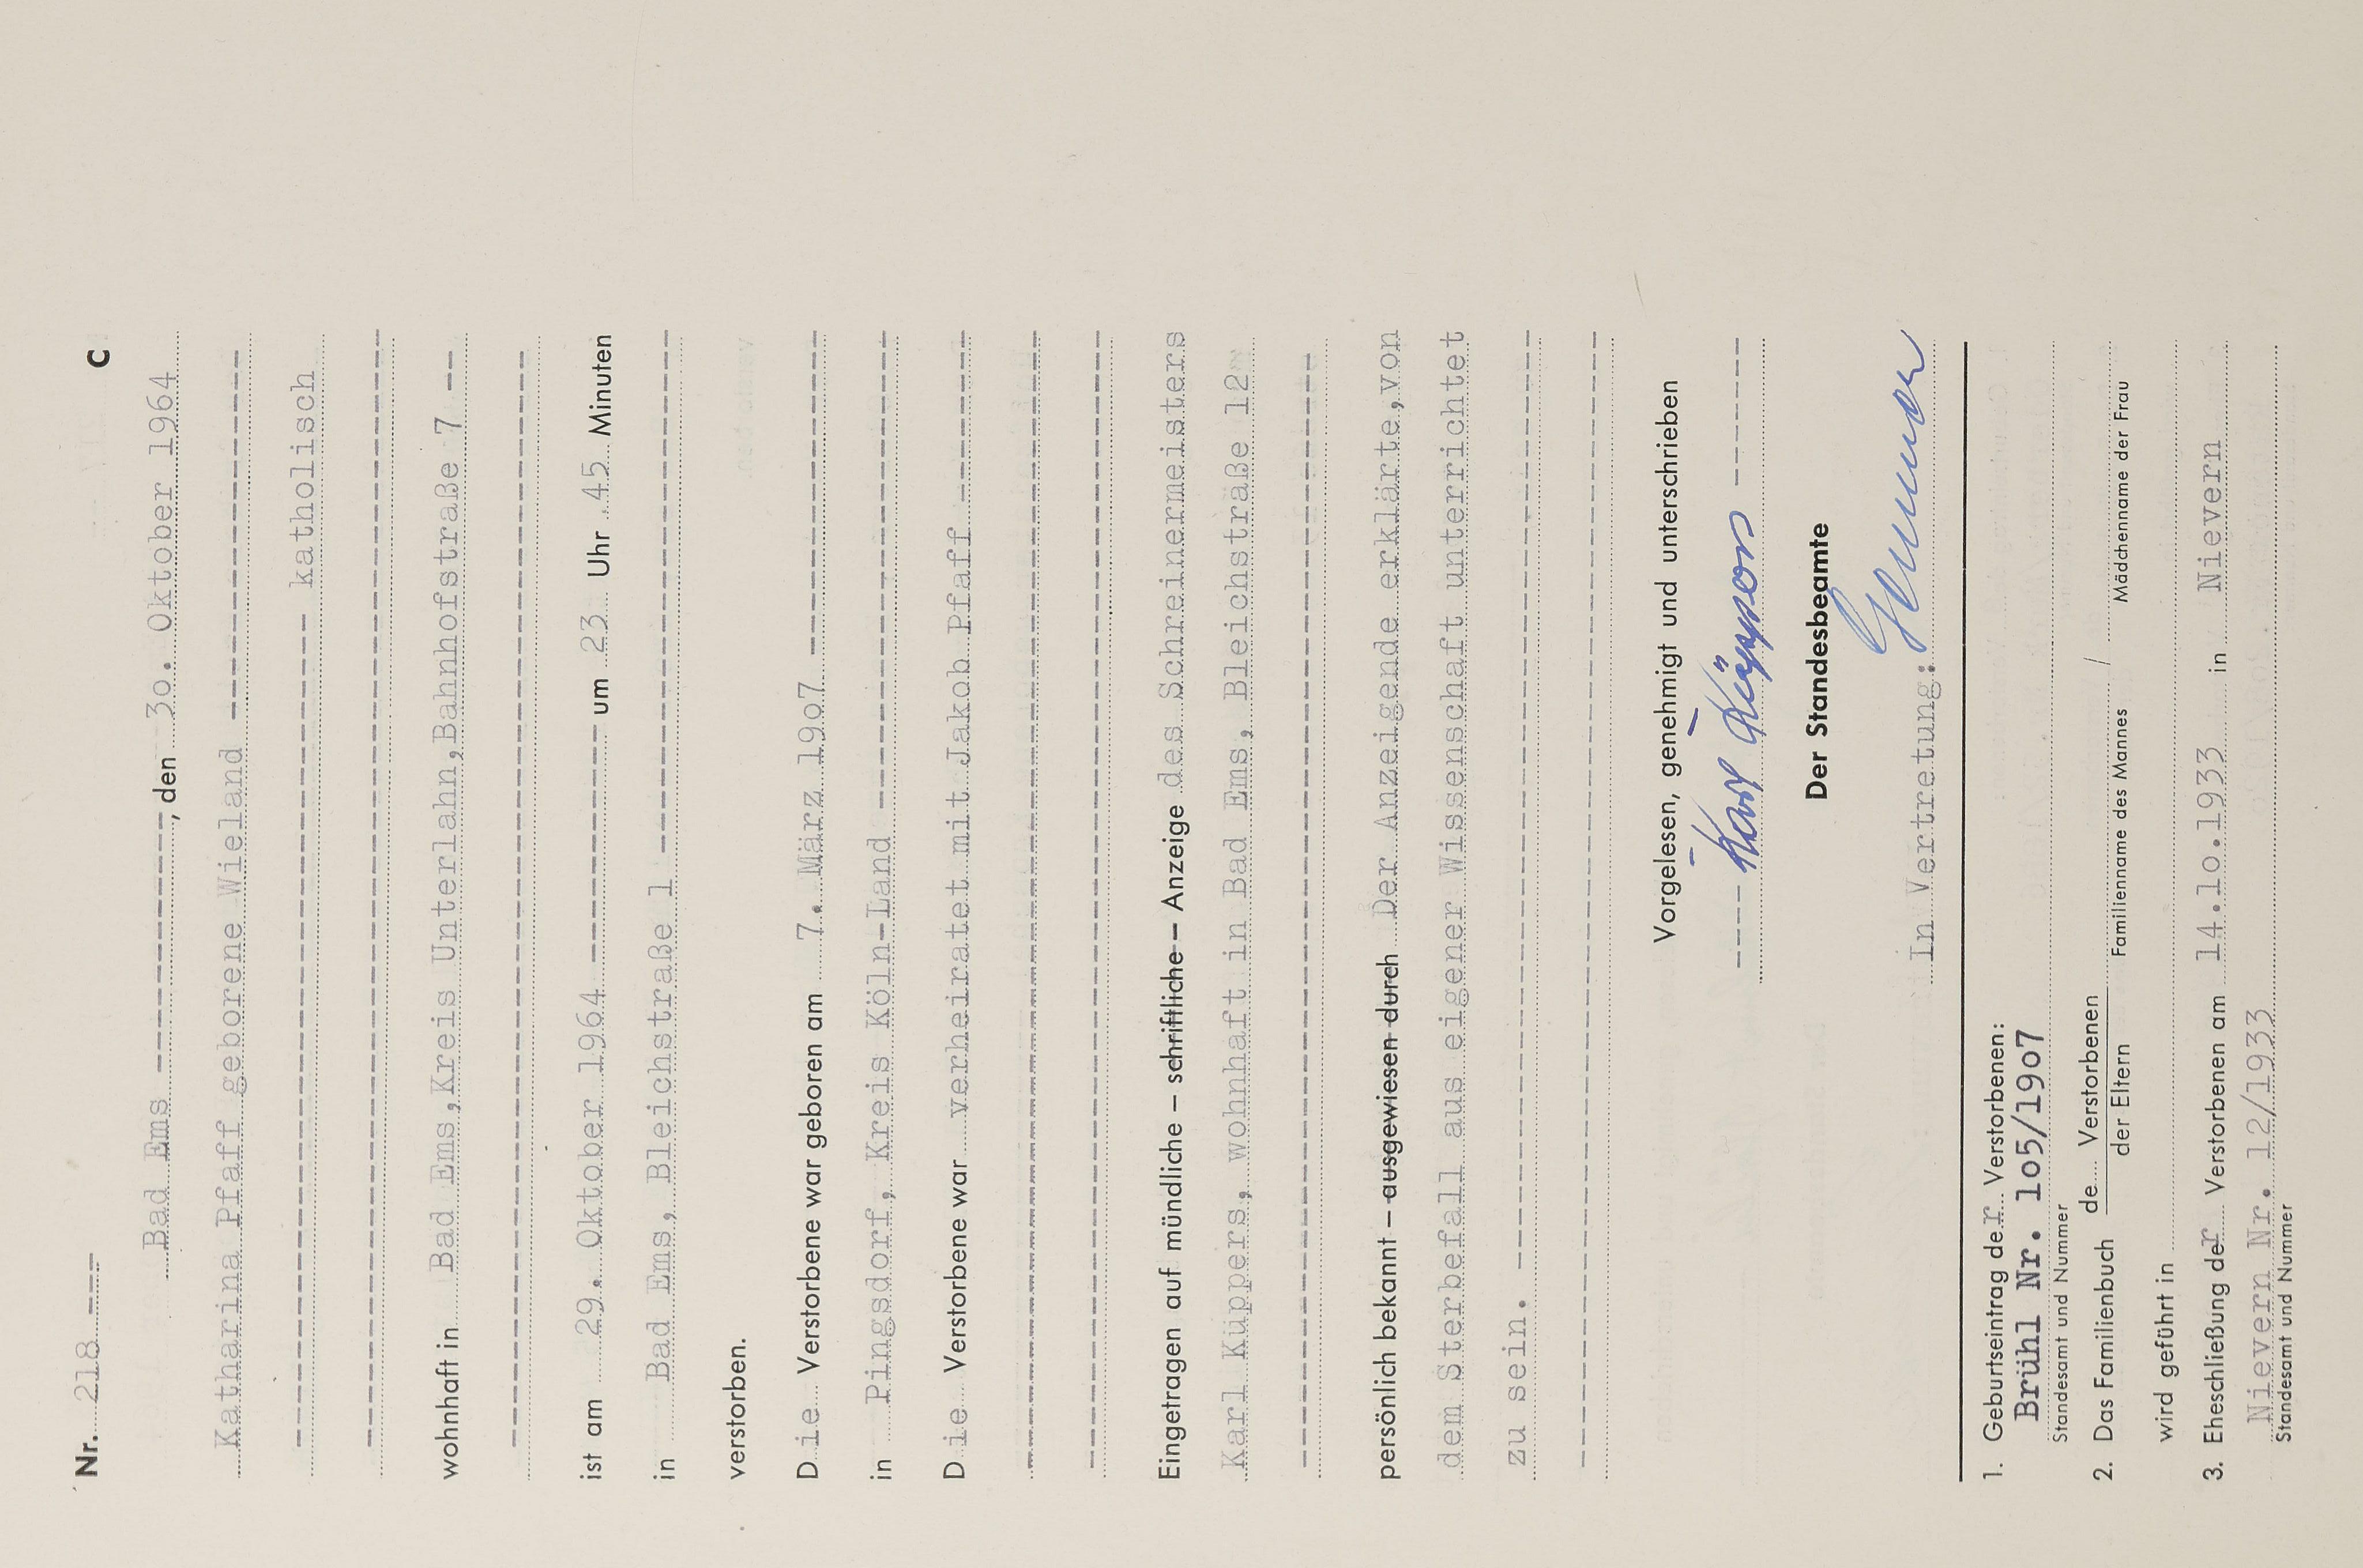 Nr. 218 ---- C
Bad Ems ----------------, den 30. Oktober 1964
Katharina Pfaff geborene Wieland ----------------------
---------------------------------------------------- katholisch
--------------------------------------------------------------------
wohnhaft in Bad Ems,Kreis Unterlahn,Bahnhofstraße 7 ---
--------------------------------------------------------------------
ist am 29. Oktober 1964 --------------- um 23 Uhr 45 Minuten
in Bad Ems, Bleichstraße 1 --------------------------------
verstorben.
Die Verstorbene war geboren am 7. März 1907 --------------------
in Pingsdorf, Kreis Köln-Land -----------------------------
Die Verstorbene war verheiratet mit Jakob Pfaff ----------
--------------------------------------------------------------------
--------------------------------------------------------------------
Eingetragen auf mündliche – schriftliche – Anzeige des Schreinermeisters
Karl Küppers, wohnhaft in Bad Ems, Bleichstraße 12
--------------------------------------------------------------------
persönlich bekannt – ausgewiesen durch Der Anzeigende erklärte,von
dem Sterbefall aus eigener Wissenschaft unterrichtet
zu sein. --------------------------------------------------------
--------------------------------------------------------------------
Vorgelesen, genehmigt und unterschrieben
---- Karl Küppers --------
Der Standesbeamte
In Vertretung:
1. Geburtseintrag der Verstorbenen:
Brühl Nr. 105/1907
Standesamt und Nummer
2. Das Familienbuch de Verstorbenen /
der Eltern Familienname des Mannes Mädchenname der Frau
wird geführt in
3. Eheschließung der Verstorbenen am 14.10.1933 in Nievern
Nievern Nr. 12/1933
Standesamt und Nummer